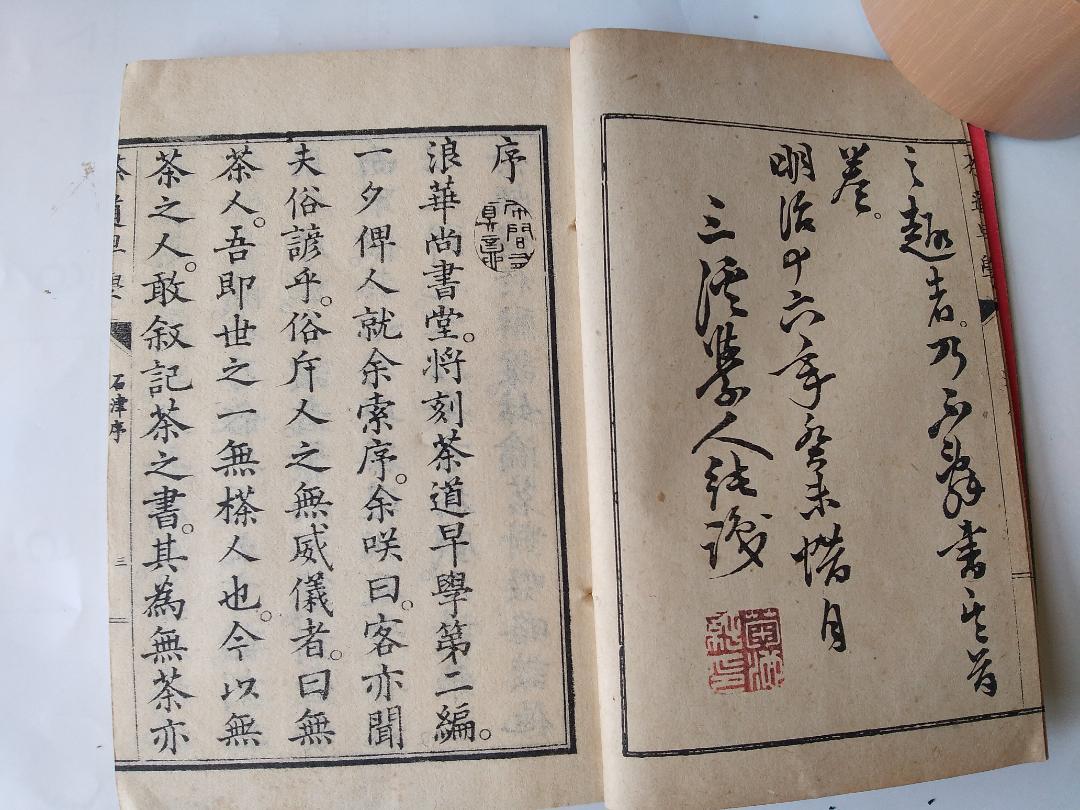 之趣者。乃不辭書其首
卷。
明治十六年癸未惜月
三溪學人純識
序
浪華尚書堂。将刻茶道早學第二編。
一夕俾人就余索序。余咲曰。客亦聞
夫俗諺乎。俗斥人之無威儀者。曰無
茶人。吾即世之一無人也。今以無
茶之人。敢叙記茶之書。其為無茶亦
茶道早學 石津序 三